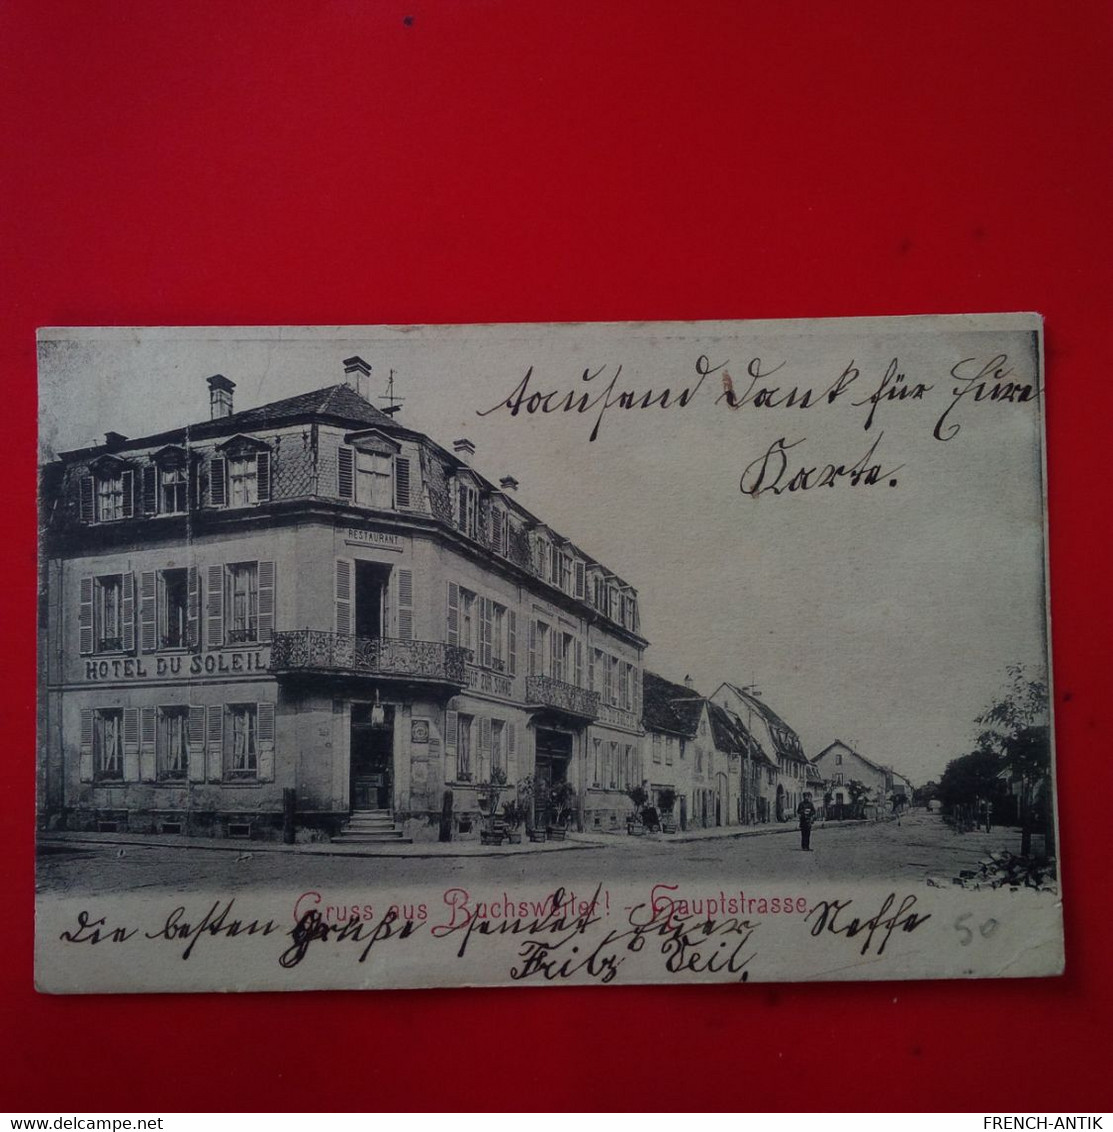 tausend Dank für Eure
Karte.
RESTAURANT
HOTEL DU SOLEIL
OF ZUR SONNE
Gruss aus Buchsweiler! - Hauptstrasse.
Die besten Grüße sendet Euer Neffe
Fritz Veil,
50
FRENCH-ANTIK